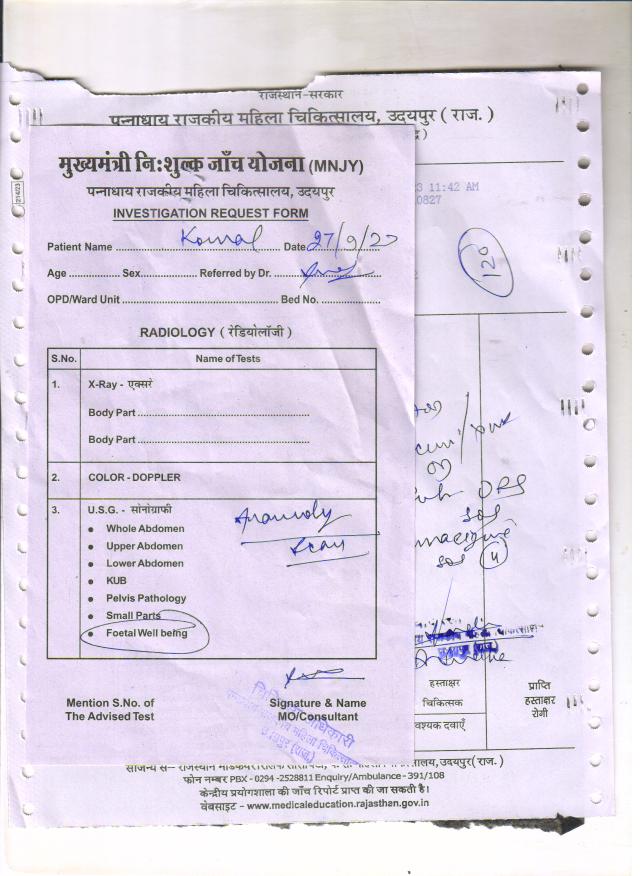 राजस्थान-सरकार
पन्नाधाय राजकीय महिला चिकित्सालय, उदयपुर ( राज. )
11:42 AM
0827
120
मुख्यमंत्री निःशुल्क जाँच योजना (MNJY)
पन्नाधाय राजकीय महिला चिकित्सालय, उदयपुर
INVESTIGATION REQUEST FORM
Patient Name Komal Date 27/9/23
Age Sex Referred by Dr.
OPD/Ward Unit Bed No.
RADIOLOGY ( रेडियोलॉजी )
S.No. Name of Tests
1. X-Ray - एक्सरे
Body Part
Body Part
2. COLOR - DOPPLER
3. U.S.G. - सोनोग्राफी
Anamoly
Scan
• Whole Abdomen
• Upper Abdomen
• Lower Abdomen
• KUB
• Pelvis Pathology
• Small Parts
• Foetal Well being
ORS
SOS
SOS 4
Mention S.No. of
The Advised Test
Signature & Name
MO/Consultant
हस्ताक्षर
चिकित्सक
वश्यक दवाएँ
प्राप्ति
हस्ताक्षर
रोगी
लय, उदयपुर( राज. )
फोन नम्बर PBX - 0294 -2528811 Enquiry/Ambulance - 391/108
केन्द्रीय प्रयोगशाला की जाँच रिपोर्ट प्राप्त की जा सकती है।
वेबसाइट - www.medicaleducation.rajasthan.gov.in